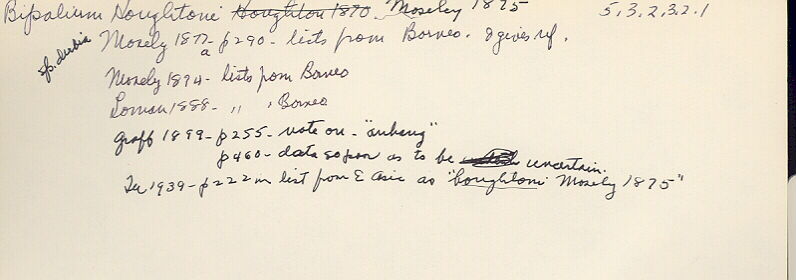 Bipalium Houghtoni Houghton 1870. Mosely 1875 5.3.2.32.1
sp. dubia
Mosely 1877a - p290 - lists from Borneo. & gives ref.
Mosely 1894 - lists from Borneo
Loman 1888 - " " Borneo
Graff 1899 - p255 - note on - "anhang"
p460 - data so poor as to be uncertain.
Lu 1939 - p222 in list from E Asia as "houghtoni Mosely 1875"